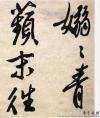 嫋々青
蘋末往